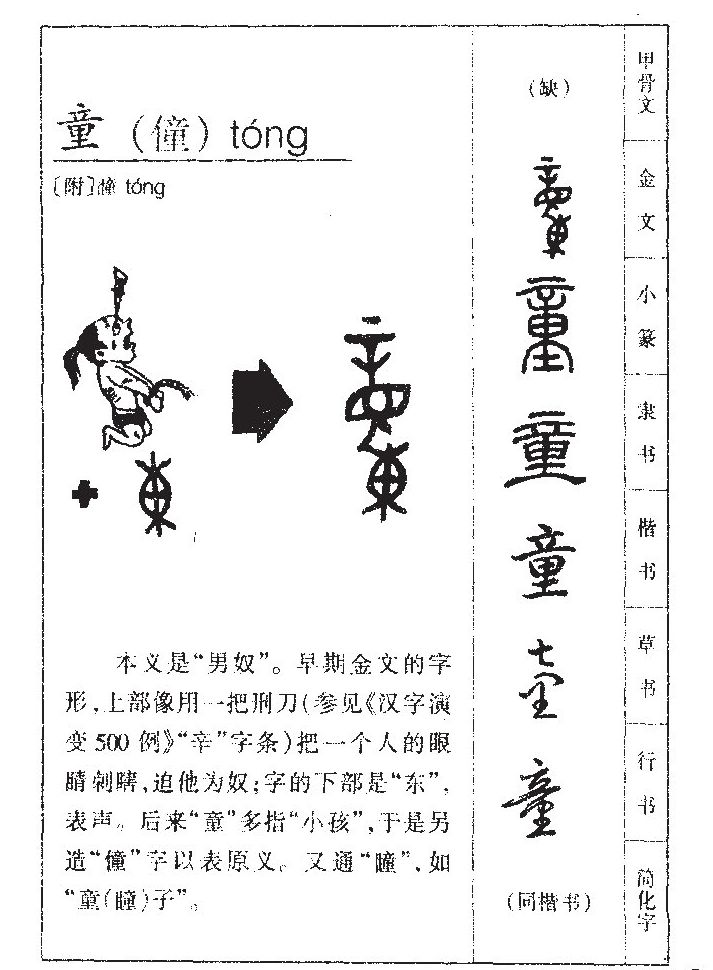 童（僮）tóng
〔附〕憧 tóng
本义是“男奴”。早期金文的字
形，上部像用一把刑刀（参见《汉字演
变500例》“辛”字条）把一个人的眼
睛刺瞎，迫他为奴；字的下部是“东”，
表声。后来“童”多指“小孩”，于是另
造“僮”字以表原义。又通“瞳”，如
“童（瞳）子”。
（缺）
甲骨文
金文
童
小篆
童
隶书
童
楷书
童
草书
童
行书
（同楷书）
简化字